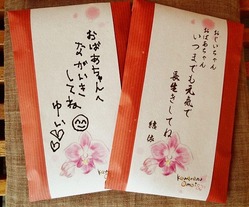 おばあちゃんへ
ながいき
してね
ゆい
おじいちゃん
おばあちゃん
いつまでも元気で
長生きしてね
結依